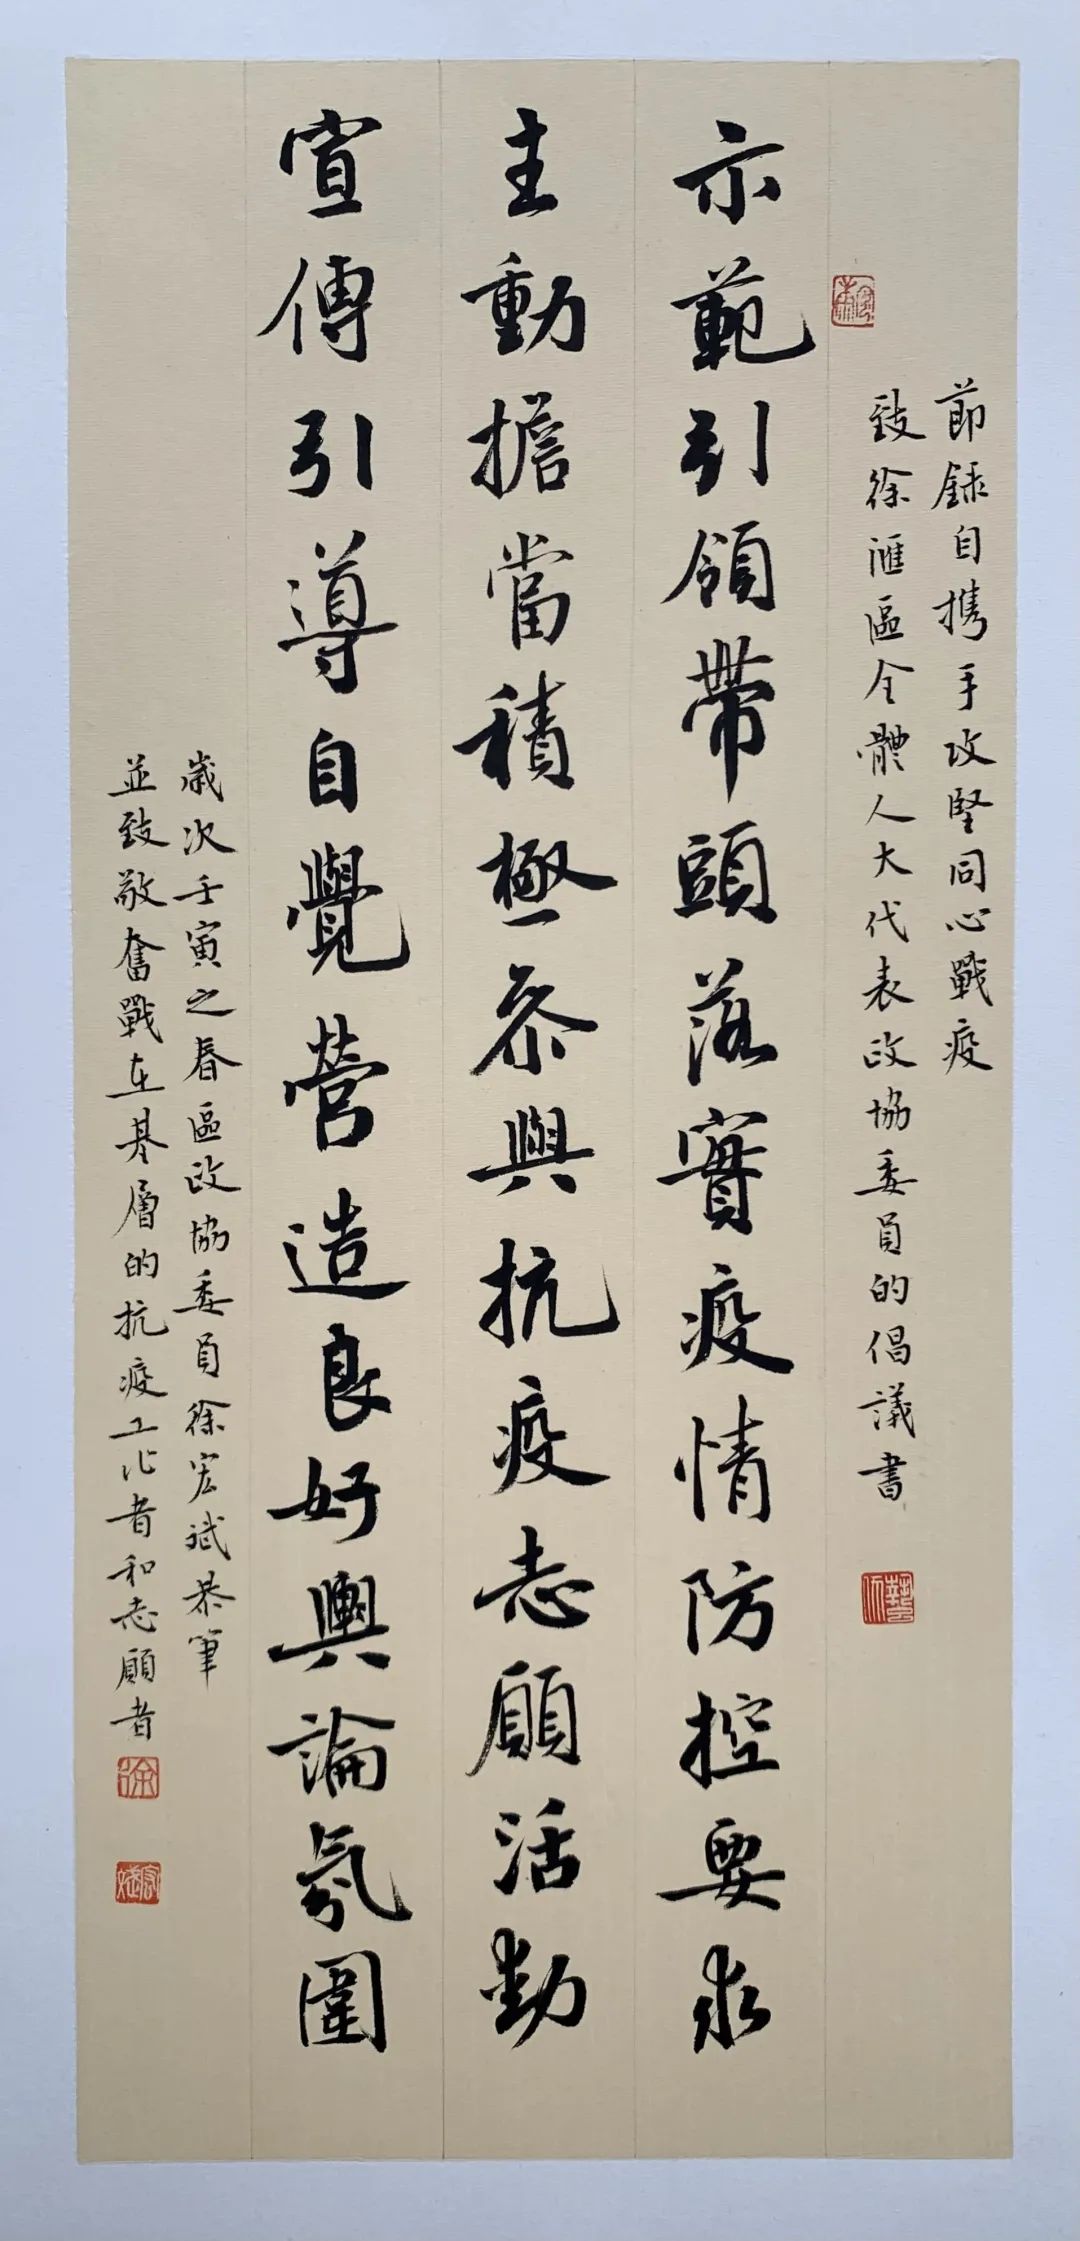 節録自攜手攻堅同心戰疫
致徐匯區全體人大代表政協委員的倡議書
示範引領帶頭落實疫情防控要求
主動擔當積極參與抗疫志願活動
宣傳引導自覺營造良好輿論氛圍
歲次壬寅之春區政協委員徐宏斌恭筆
並致敬奮戰在基層的抗疫工作者和志願者
徐